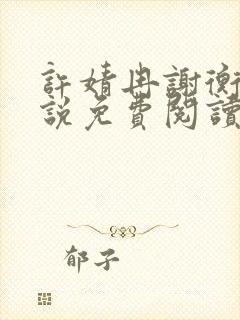 許婧冉謝衡
說免費閱讀
郁子